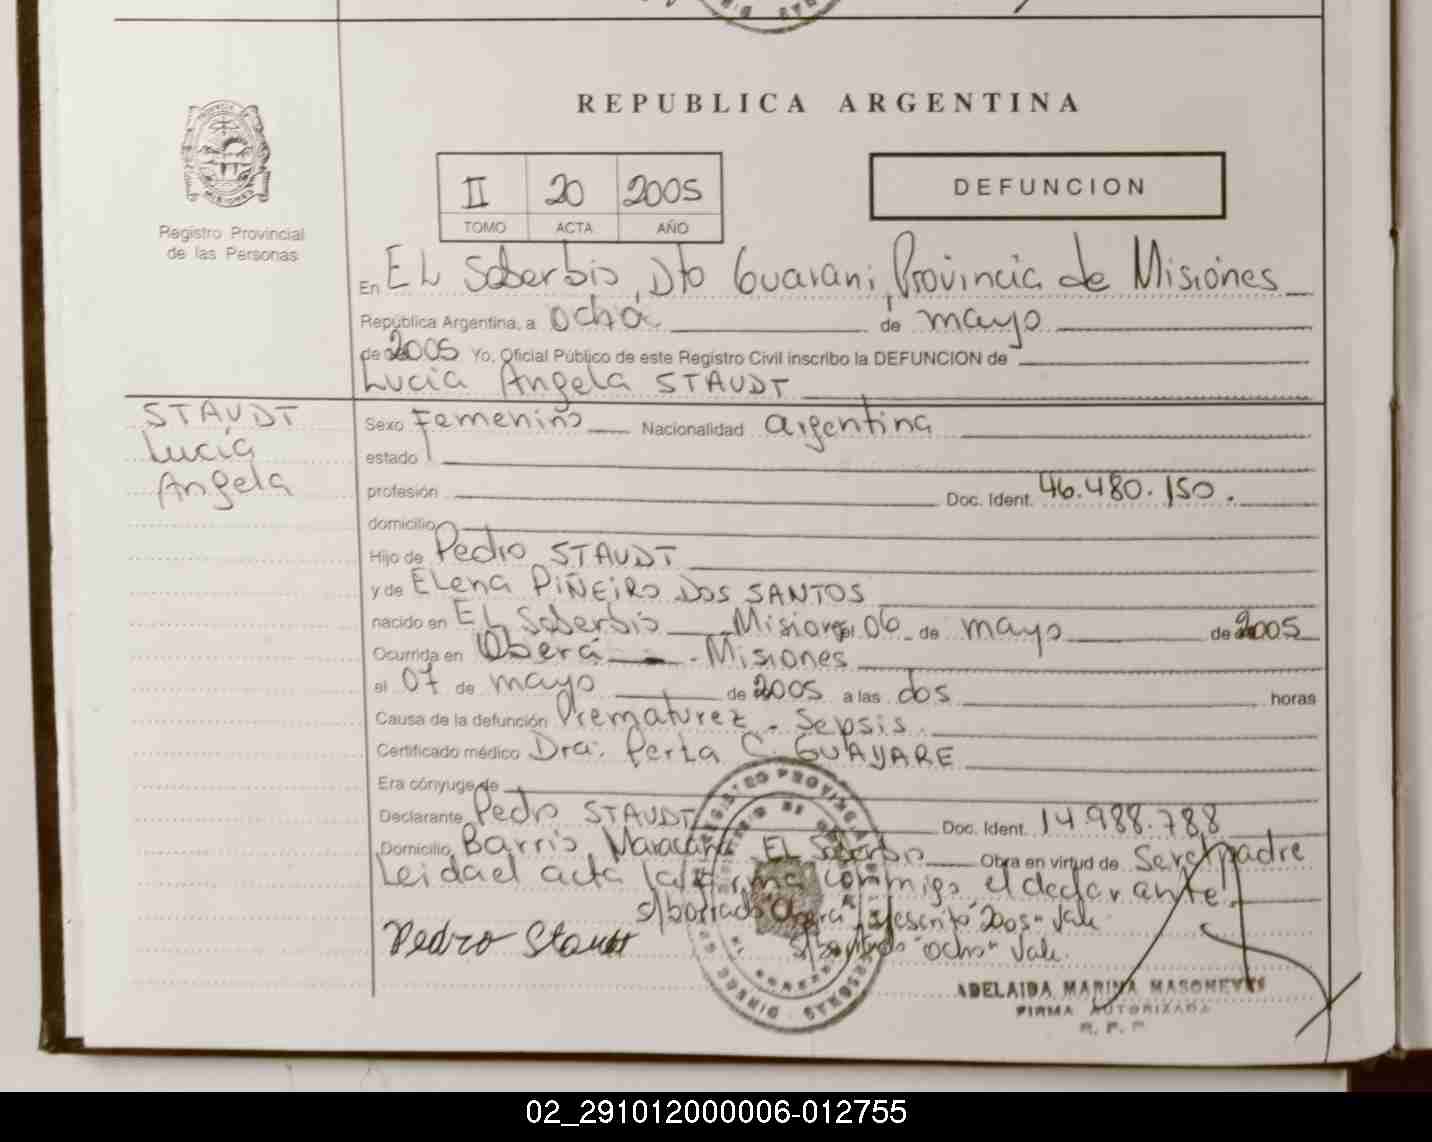 REPUBLICA ARGENTINA
Registro Provincial
de las Personas
II 20 2005
TOMO ACTA AÑO
DEFUNCION
En EL Soberbio, Dto Guarani, Provincia de Misiones
República Argentina, a ocho de mayo
de 2005 Yo, Oficial Público de este Registro Civil inscribo la DEFUNCION de
Lucia Angela STAUDT
STAUDT
Lucia
Angela
Sexo Femenino Nacionalidad argentina
estado
profesión Doc. Ident. 46.480.150.
domicilio
Hijo de Pedro STAUDT
y de Elena PIÑEIRO DOS SANTOS
nacido en EL Soberbio Misiones el 06 de mayo de 2005
Ocurrida en Oberá - Misiones
el 07 de mayo de 2005 a las dos horas
Causa de la defunción Prematurez - Sepsis
Certificado médico Dra. Perla C. GUAYARE
Era cónyuge de
Declarante Pedro STAUDT Doc. Ident. 14.988.788
Domicilio Barrio Maracaná EL Soberbio Obra en virtud de Ser el padre
Leida el acta la firma conmigo el declarante
s/borrado "Oberá" s/escrito "2005" Vale
s/borrado "ocho" Vale.
Pedro Staudt
ADELAIDA MARINA
FIRMA AUTORIZADA
R. P. P.
02_291012000006-012755